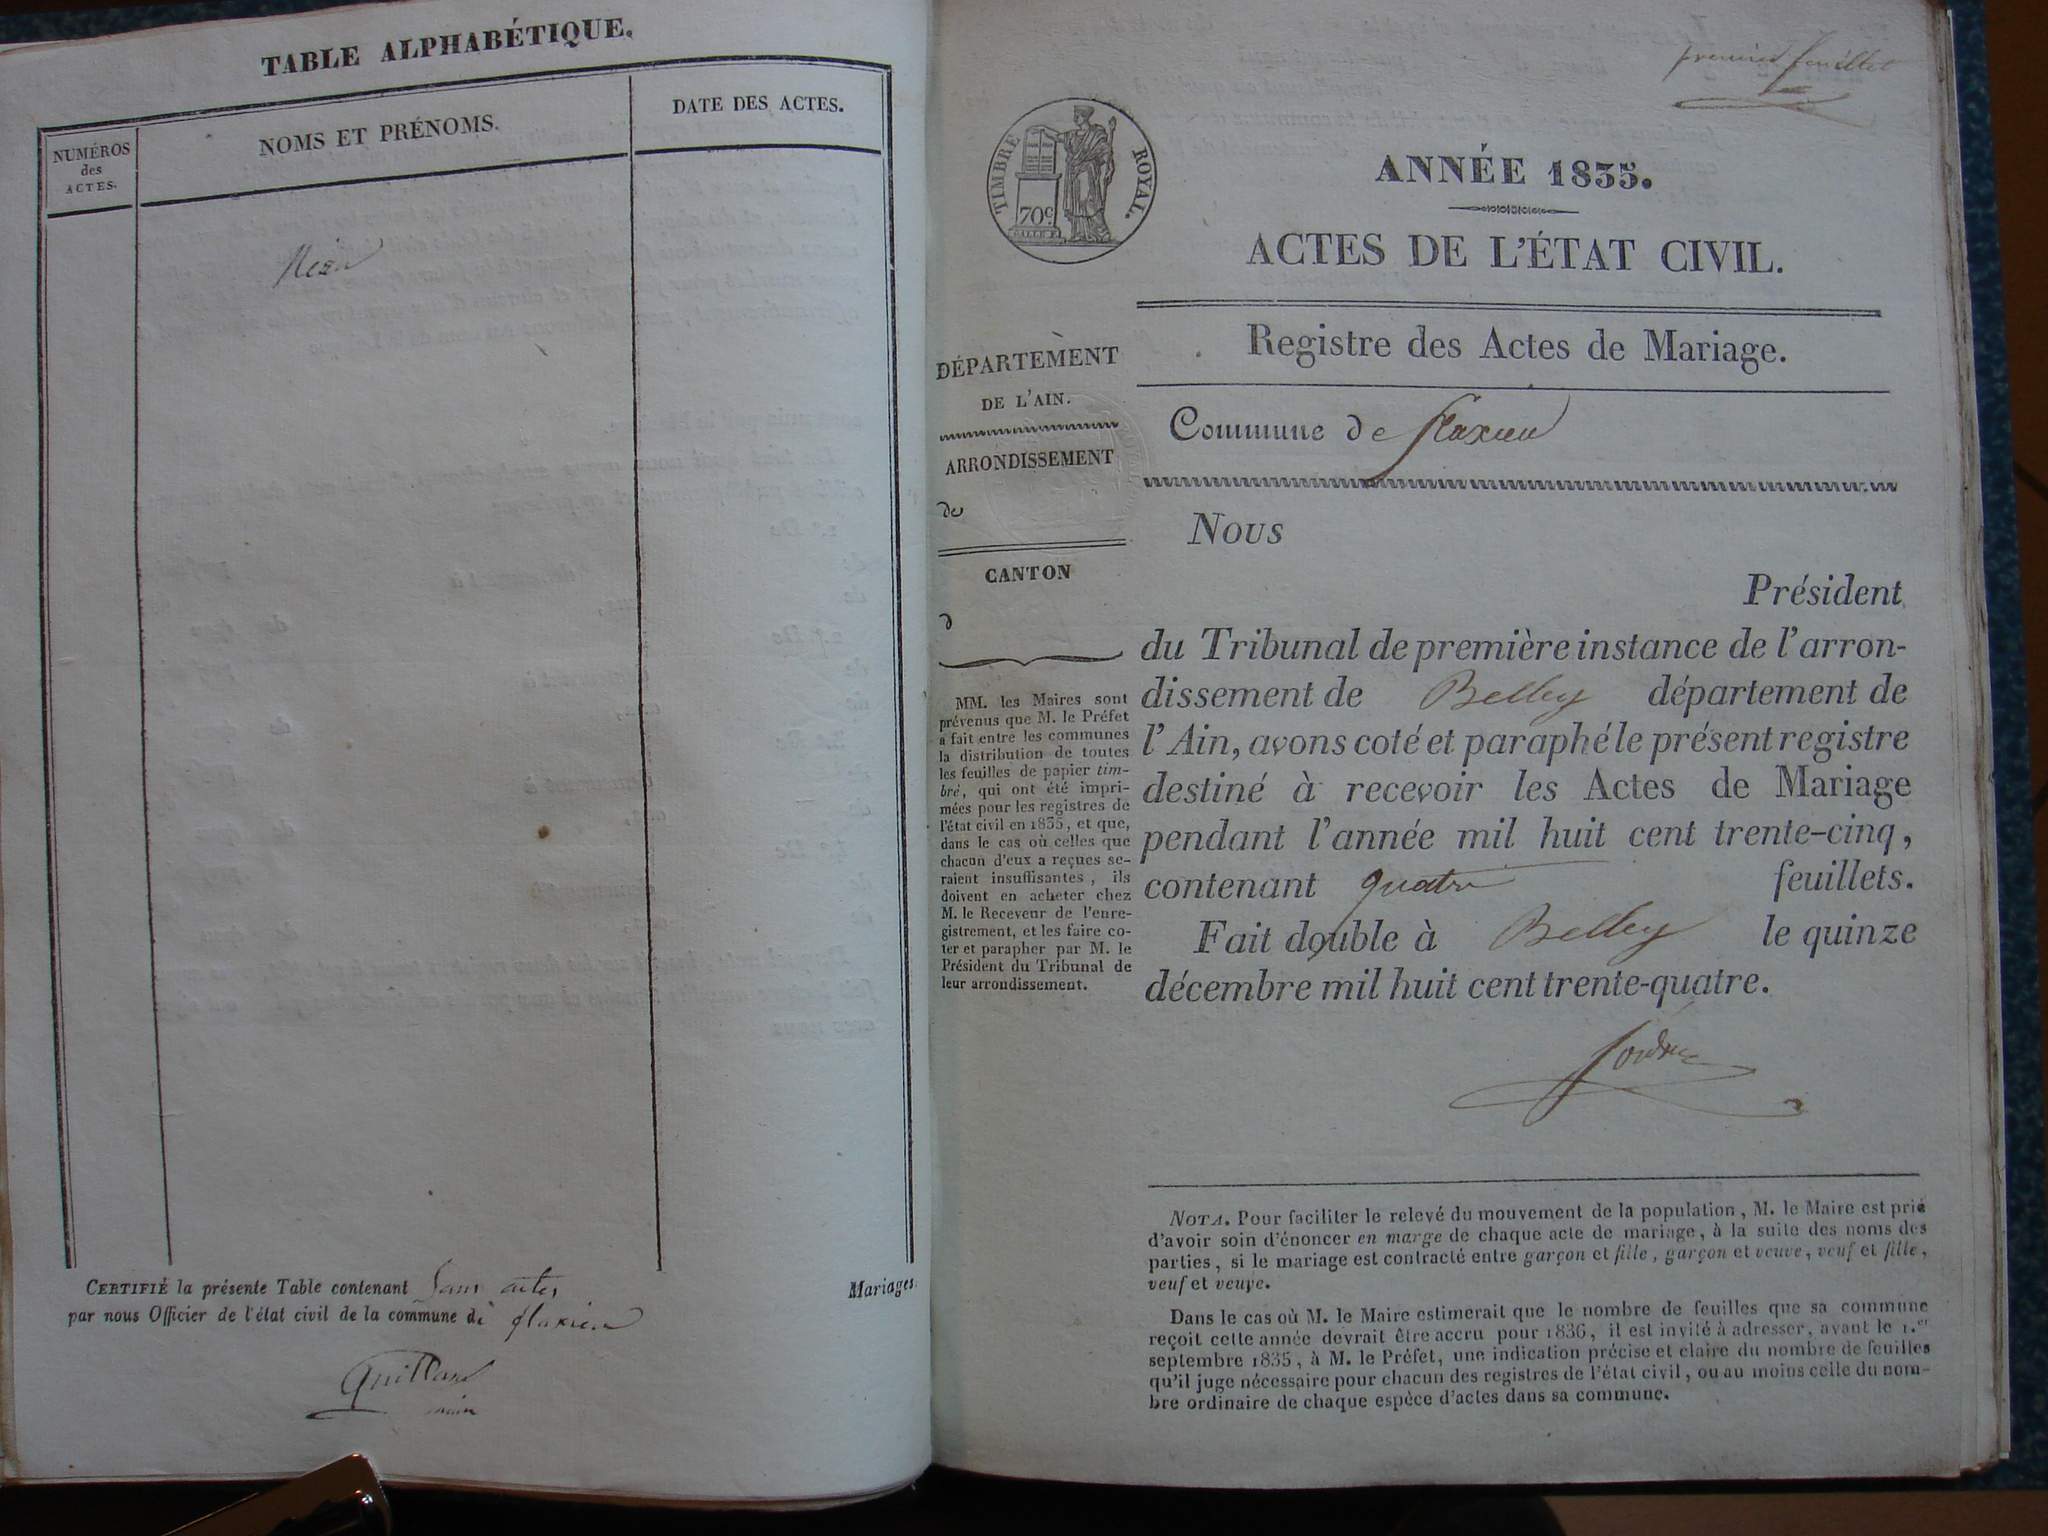 TABLE ALPHABÉTIQUE.
NUMÉROS
des
ACTES.
NOMS ET PRÉNOMS.
DATE DES ACTES.
CERTIFIÉ la présente Table contenant sans actes
Mariages.
par nous Officier de l'état civil de la commune de flaxieu
premier feuillet
TIMBRE ROYAL.
70c
ANNÉE 1835.
ACTES DE L'ÉTAT CIVIL.
Registre des Actes de Mariage.
DÉPARTEMENT
DE L'AIN.
ARRONDISSEMENT
de
CANTON
d
MM. les Maires sont
prévenus que M. le Préfet
a fait entre les communes
la distribution de toutes
les feuilles de papier tim-
bré, qui ont été impri-
mées pour les registres de
l'état civil en 1835, et que,
dans le cas où celles que
chacun d'eux a reçues se-
raient insuffisantes, ils
doivent en acheter chez
M. le Receveur de l'enre-
gistrement, et les faire co-
ter et parapher par M. le
Président du Tribunal de
leur arrondissement.
Commune de flaxieu
Nous
Président
du Tribunal de première instance de l'arron-
dissement de Belley département de
l'Ain, avons coté et paraphé le présent registre
destiné à recevoir les Actes de Mariage
pendant l'année mil huit cent trente-cinq,
contenant quatre feuillets.
Fait double à Belley le quinze
décembre mil huit cent trente-quatre.
NOTA. Pour faciliter le relevé du mouvement de la population, M. le Maire est prié
d'avoir soin d'énoncer en marge de chaque acte de mariage, à la suite des noms des
parties, si le mariage est contracté entre garçon et fille, garçon et veuve, veuf et fille,
veuf et veuve.
Dans le cas où M. le Maire estimerait que le nombre de feuilles que sa commune
reçoit cette année devrait être accru pour 1836, il est invité à adresser, avant le 1.er
septembre 1835, à M. le Préfet, une indication précise et claire du nombre de feuilles
qu'il juge nécessaire pour chacun des registres de l'état civil, ou au moins celle du nom-
bre ordinaire de chaque espèce d'actes dans sa commune.